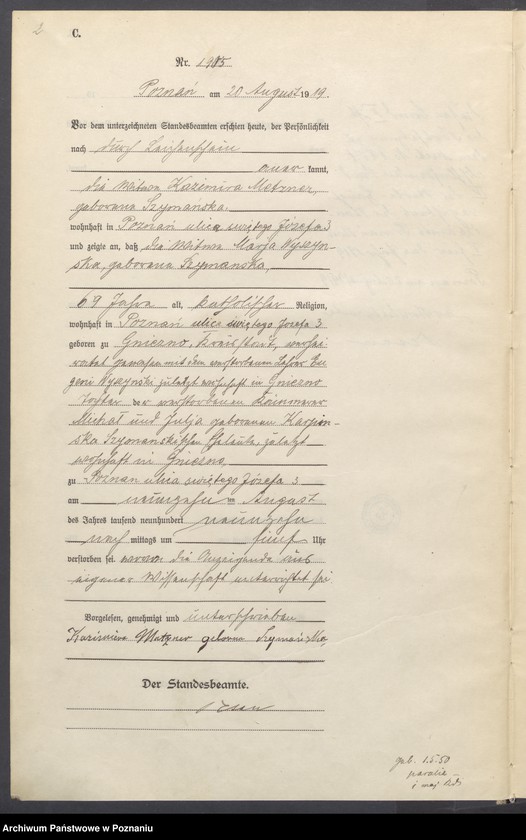 2
C.
Nr. 1985
Poznań am 20 August 1919.
Vor dem unterzeichneten Standesbeamten erschien heute, der Persönlichkeit
nach durch Leichenschein
aner kannt,
die Witwe Kazimira Metzner,
geborene Szymańska,
wohnhaft in Poznań ulica świętego Józefa 3
und zeigte an, daß die Witwe Marja Wyszyn-
ska, geborene Szymanska,
69 Jahre alt, katholischer Religion,
wohnhaft in Poznań ulica świętego Józefa 3
geboren zu Gniezno, Kreisstadt, verhei-
ratet gewesen mit dem verstorbenen Lehrer Eu
geni Wyszynski zuletzt wohnhaft in Gniezno
Tochter der verstorbenen
Michał und Julja geborenen Karpin-
ska Szymanskischen Eheleute, zuletzt
wohnhaft in Gniezno,
zu Poznań ulica świętego Józefa 3
am neunzehn ten August
des Jahres tausend neunhundert neunzehn
nach mittags um fünf Uhr
verstorben sei. wovon die Anzeigende aus
eigener Wissenschaft unterrichtet sei
Vorgelesen, genehmigt und unterschrieben
Kazimiera Metzner geborene Szymańska,
Der Standesbeamte.
geb. 1.5.50
parafia
Archiwum Państwowe w Poznaniu